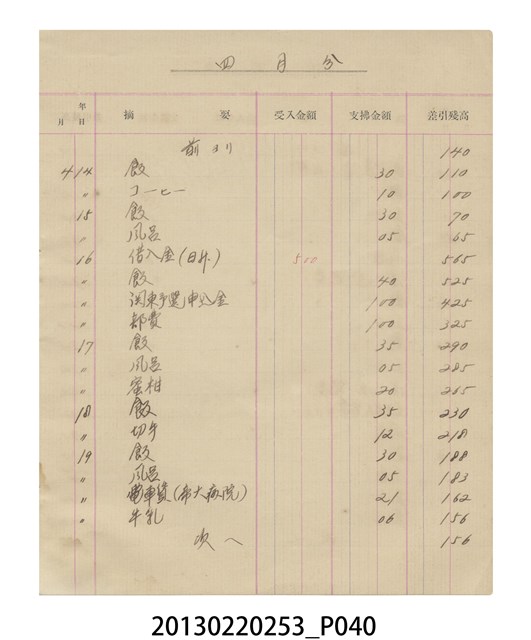 四月分
年 月 日 摘要 受入金額 支拂金額 差引残高
前ヨリ 140
4 14 飯 30 110
〃 コーヒー 10 100
15 飯 30 70
〃 風呂 05 65
16 借入金(日升) 500 565
〃 飯 40 525
〃 関東予選申込金 100 425
〃 部費 100 325
17 飯 35 290
〃 風呂 05 285
〃 蜜柑 20 265
18 飯 35 230
〃 切手 12 218
19 飯 30 188
〃 風呂 05 183
〃 電車賃(帝大病院) 21 162
〃 牛乳 06 156
次へ 156
20130220253_P040